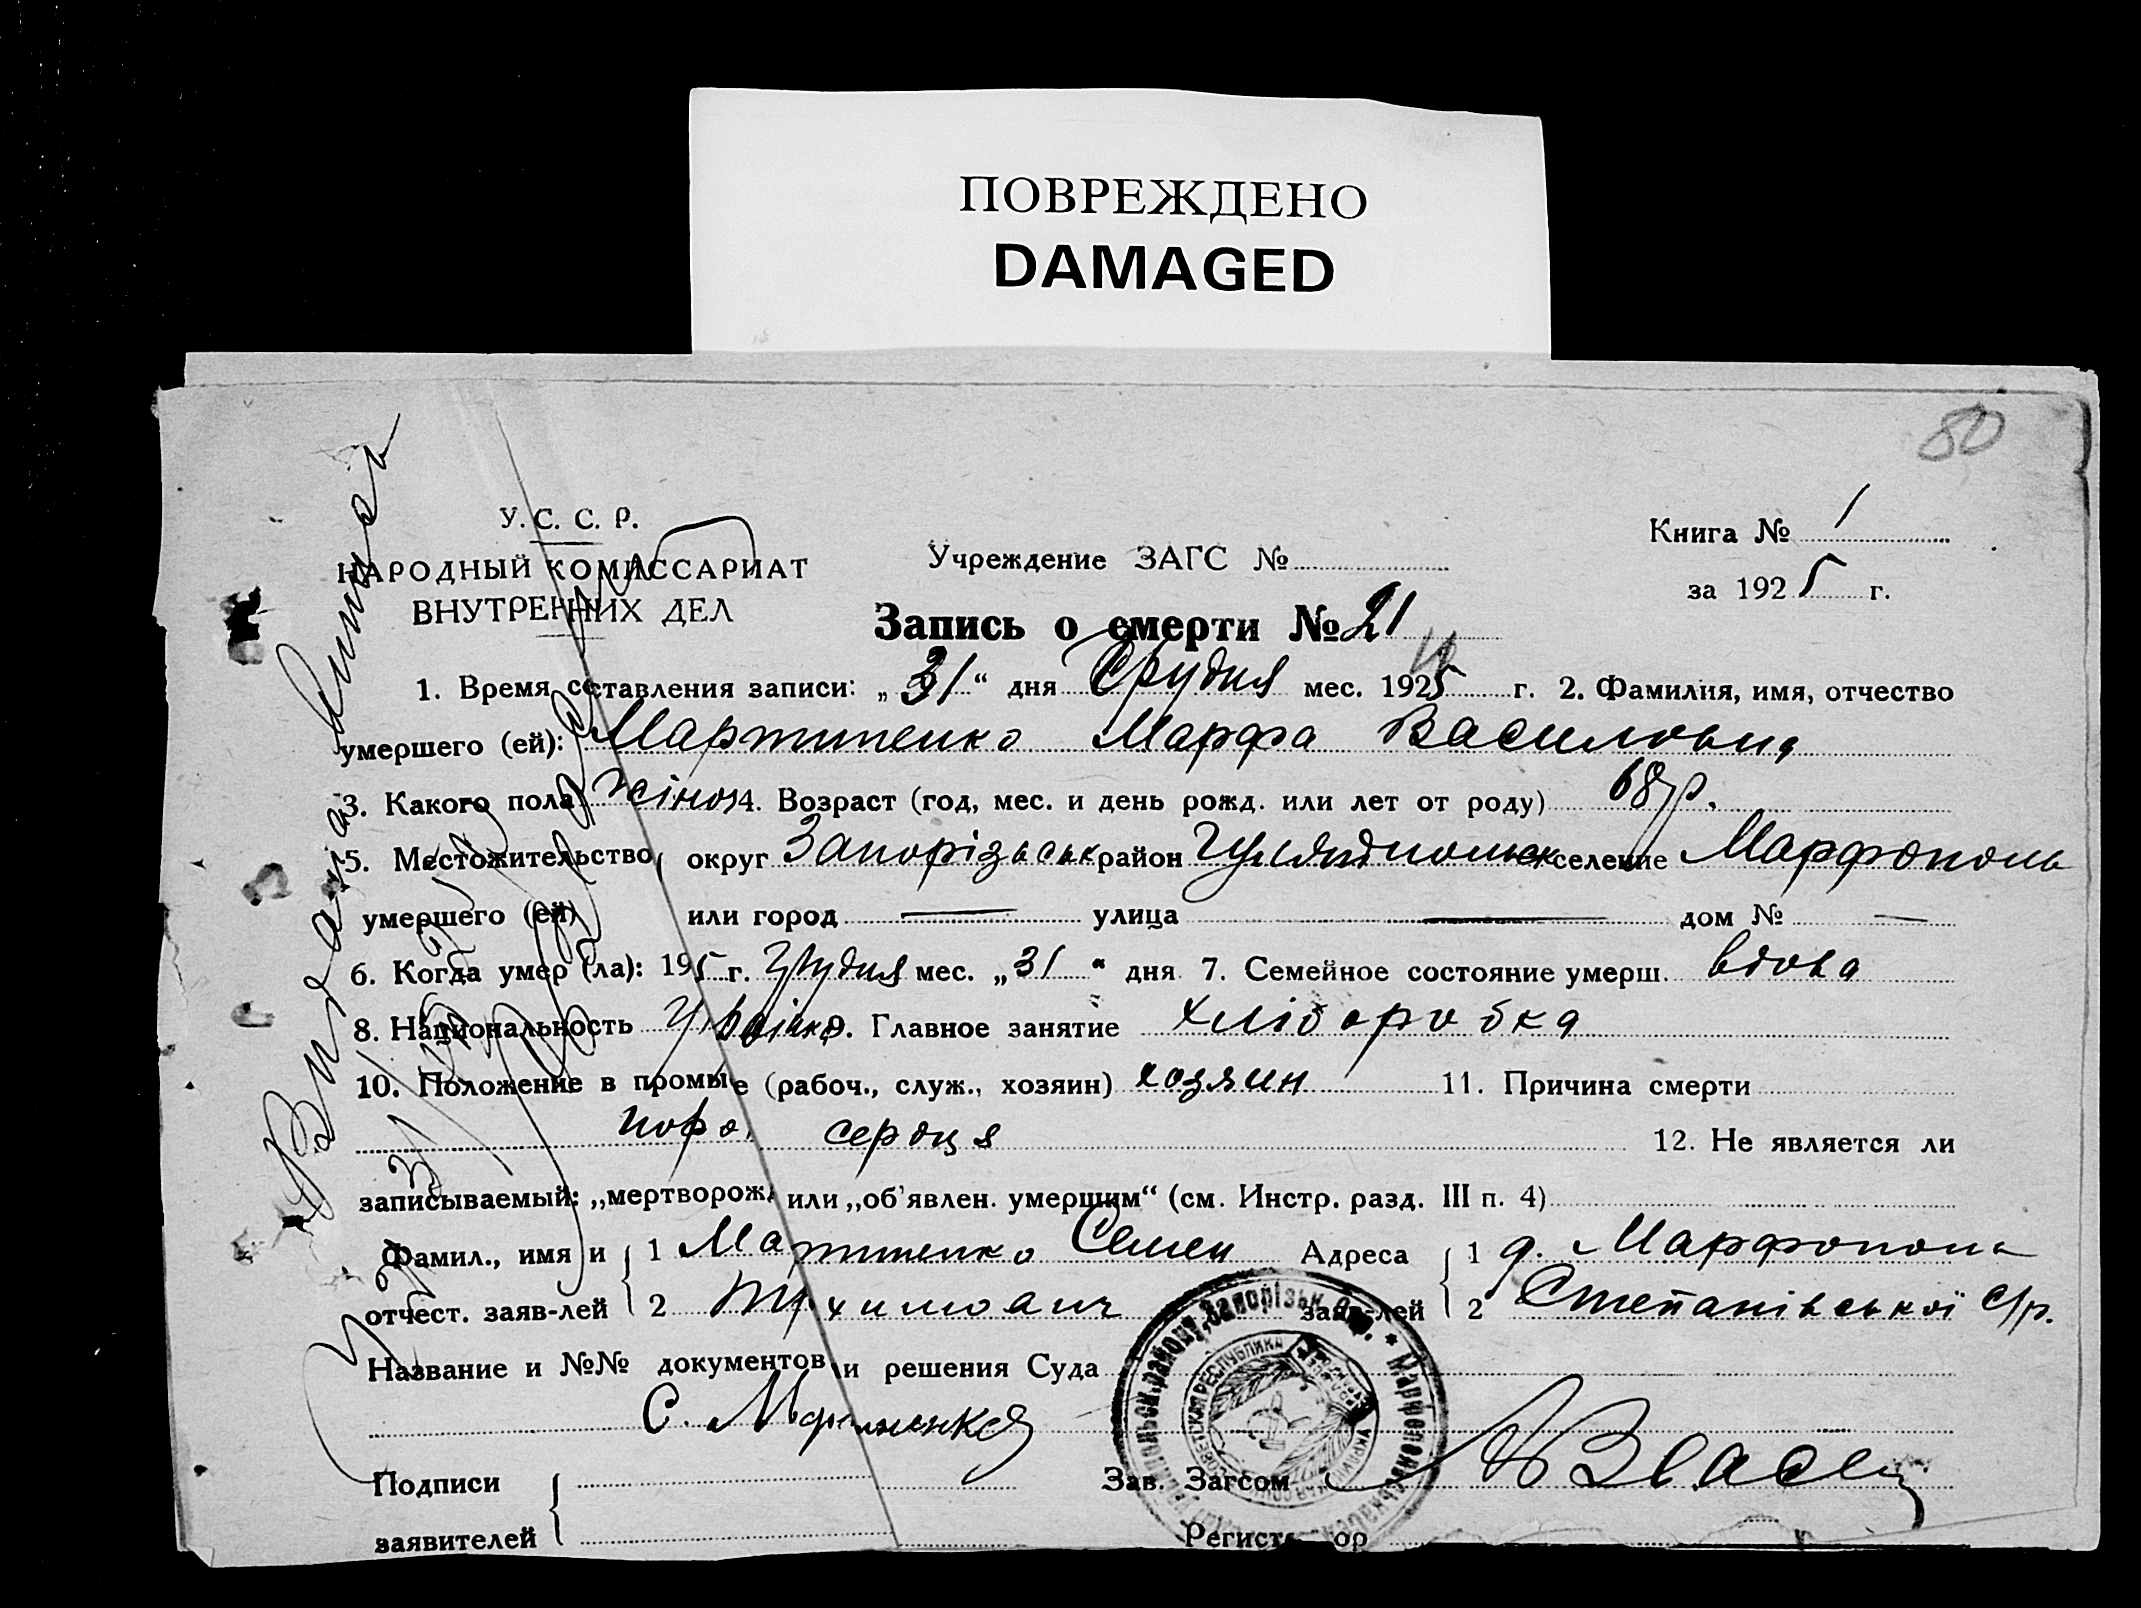 ПОВРЕЖДЕНО
DAMAGED
80
У. С. С. Р.
НАРОДНЫЙ КОМИССАРИАТ
ВНУТРЕННИХ ДЕЛ
Учреждение ЗАГС №
Книга № 1
за 1925 г.
Запись о смерти № 21
1. Время составления записи: „31“ дня Грудня мес. 1925 г. 2. Фамилия, имя, отчество
умершего (ей): Мартиненко Марфа Василовна
3. Какого пола жіноч 4. Возраст (год, мес. и день рожд. или лет от роду) 68 р.
5. Местожительство округ Запорізськ район селение Марфополь
умершего (ей) или город — улица — дом № —
6. Когда умер (ла): 195 г. Грудня мес. „31“ дня 7. Семейное состояние умерш. вдова
8. Национальность Українка 9. Главное занятие хліборобка
10. Положение в промы е (рабоч., служ., хозяин) хозяин 11. Причина смерти
порок сердця 12. Не является ли
записываемый: „мертворож или „об'явлен. умершим“ (см. Инстр. разд. III п. 4)
Фамил., имя и 1 Мартиненко Семен Адреса 1 д. Марфополь
отчест. заяв-лей 2 заяв-лей 2 Степанівської с/р.
Название и №№ документов и решения Суда
С. Мартиненко
Подписи Зав. Загсом
заявителей Регист ор